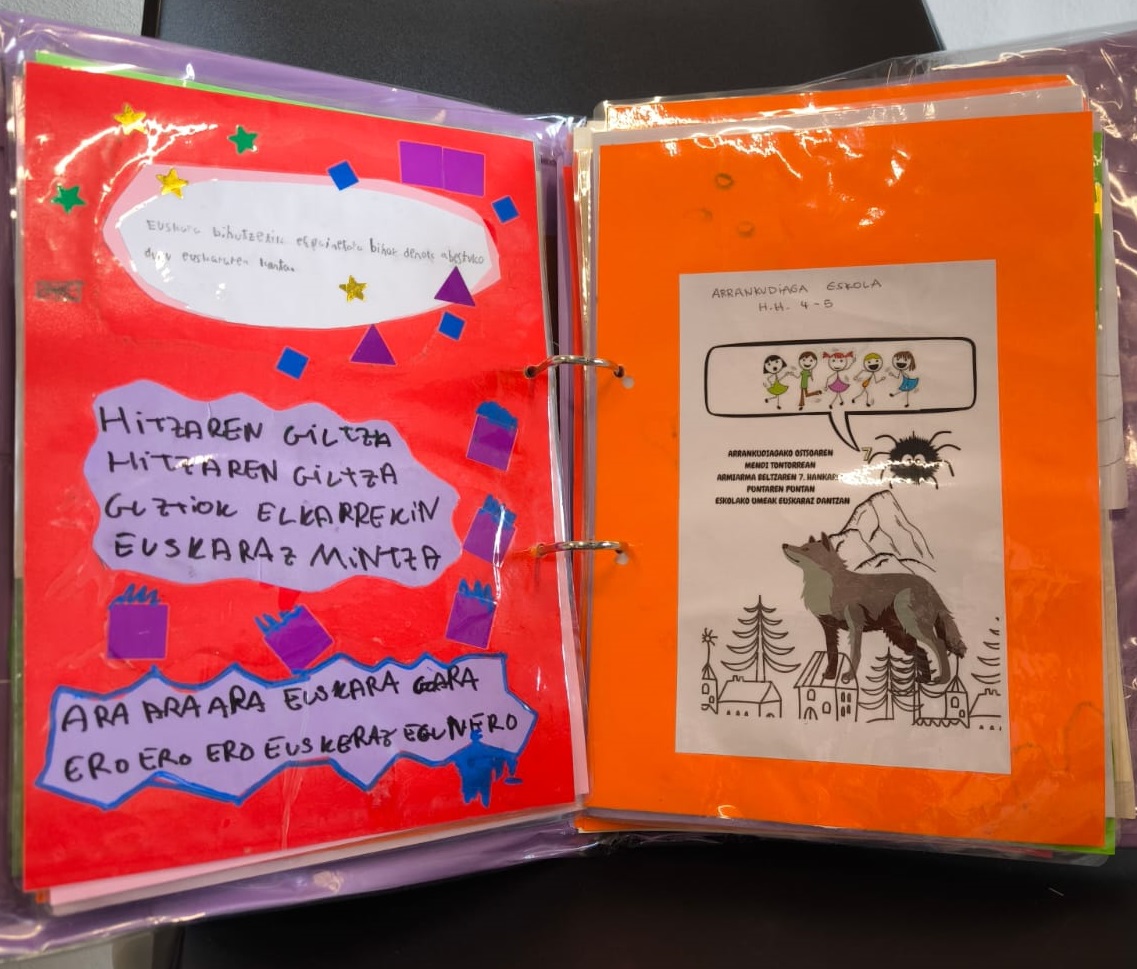 Euskara bihotzetik ezpainetara bihar denok abestuko
dugu euskararen kanta.
HiTZAREN GiLTZA
HiTZAREN GiLTZA
GUZTiOK ELKARREKiN
EUSKARAZ MiNTZA
ARA ARA ARA EUSKARA GARA
ERO ERO ERO EUSKERAZ EGUNERO
ARRANKUDiAGA ESKOLA
H.H. 4-5
7
ARRANKUDIAGAKO OTSOAREN
MENDI TONTORREAN
ARMIARMA BELTZAREN 7. HANKAREN
PUNTAREN PUNTAN
ESKOLAKO UMEAK EUSKARAZ DANTZAN